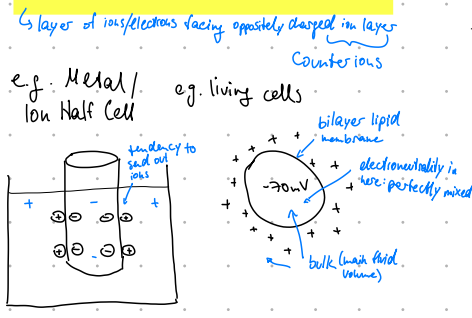 ↳ layer of ions/electrons facing oppositely charged ion layer
Counterions
e.g. Metal/
Ion Half Cell
e.g. living cells
tendency to
send out
ions
+ - +
⊕ ⊖ ⊖ ⊕
⊕ ⊖ ⊖ ⊕
-
bilayer lipid
membrane
electroneutrality in
here: perfectly mixed
-70mV
bulk (main fluid
volume)